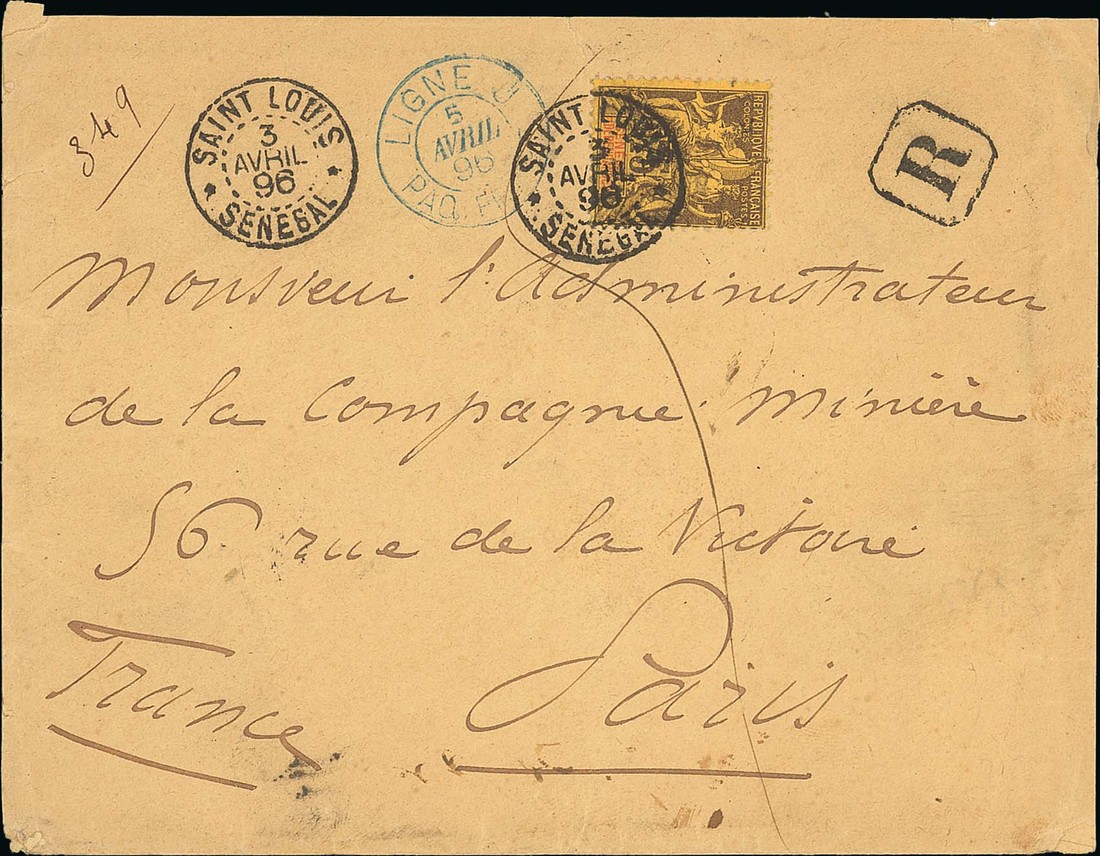 349
SAINT LOUIS
3
AVRIL
96
SENEGAL
LIGNE J
5
AVRIL
96
PAQ. FR
SAINT LOUIS
3
AVRIL
96
SENEGAL
REPUBLIQUE FRANÇAISE
COLONIES
POSTES
R
Monsieur l'Administrateur
de la Compagnie Minière
56 rue de la Victoire
Paris
France